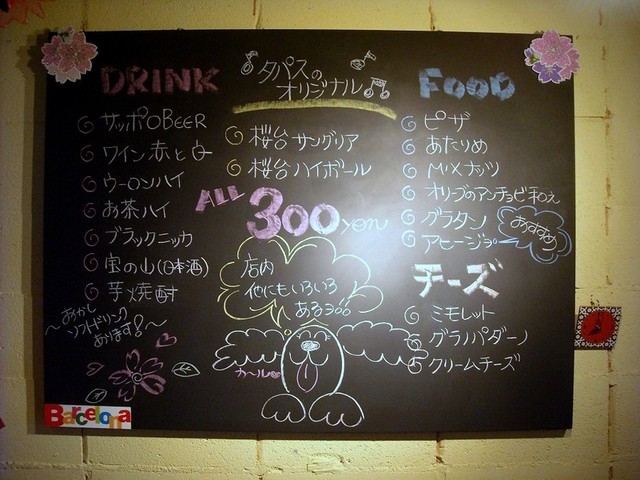 DRINK
サッポロBEER
ワイン赤と白
ウーロンハイ
お茶ハイ
ブラックニッカ
宝の山(日本酒)
芋焼酎
〜おかし
ソフトドリンク
あります!〜
Barcelona
タパスの
オリジナル
桜台サングリア
桜台ハイボール
ALL
300yen
店内
他にもいろいろ
あるヨ!!
カール
FOOD
ピザ
あたりめ
MIXナッツ
オリーブのアンチョビ和え
グラタン
アヒージョ
おすすめ
チーズ
ミモレット
グラノパダーノ
クリームチーズ